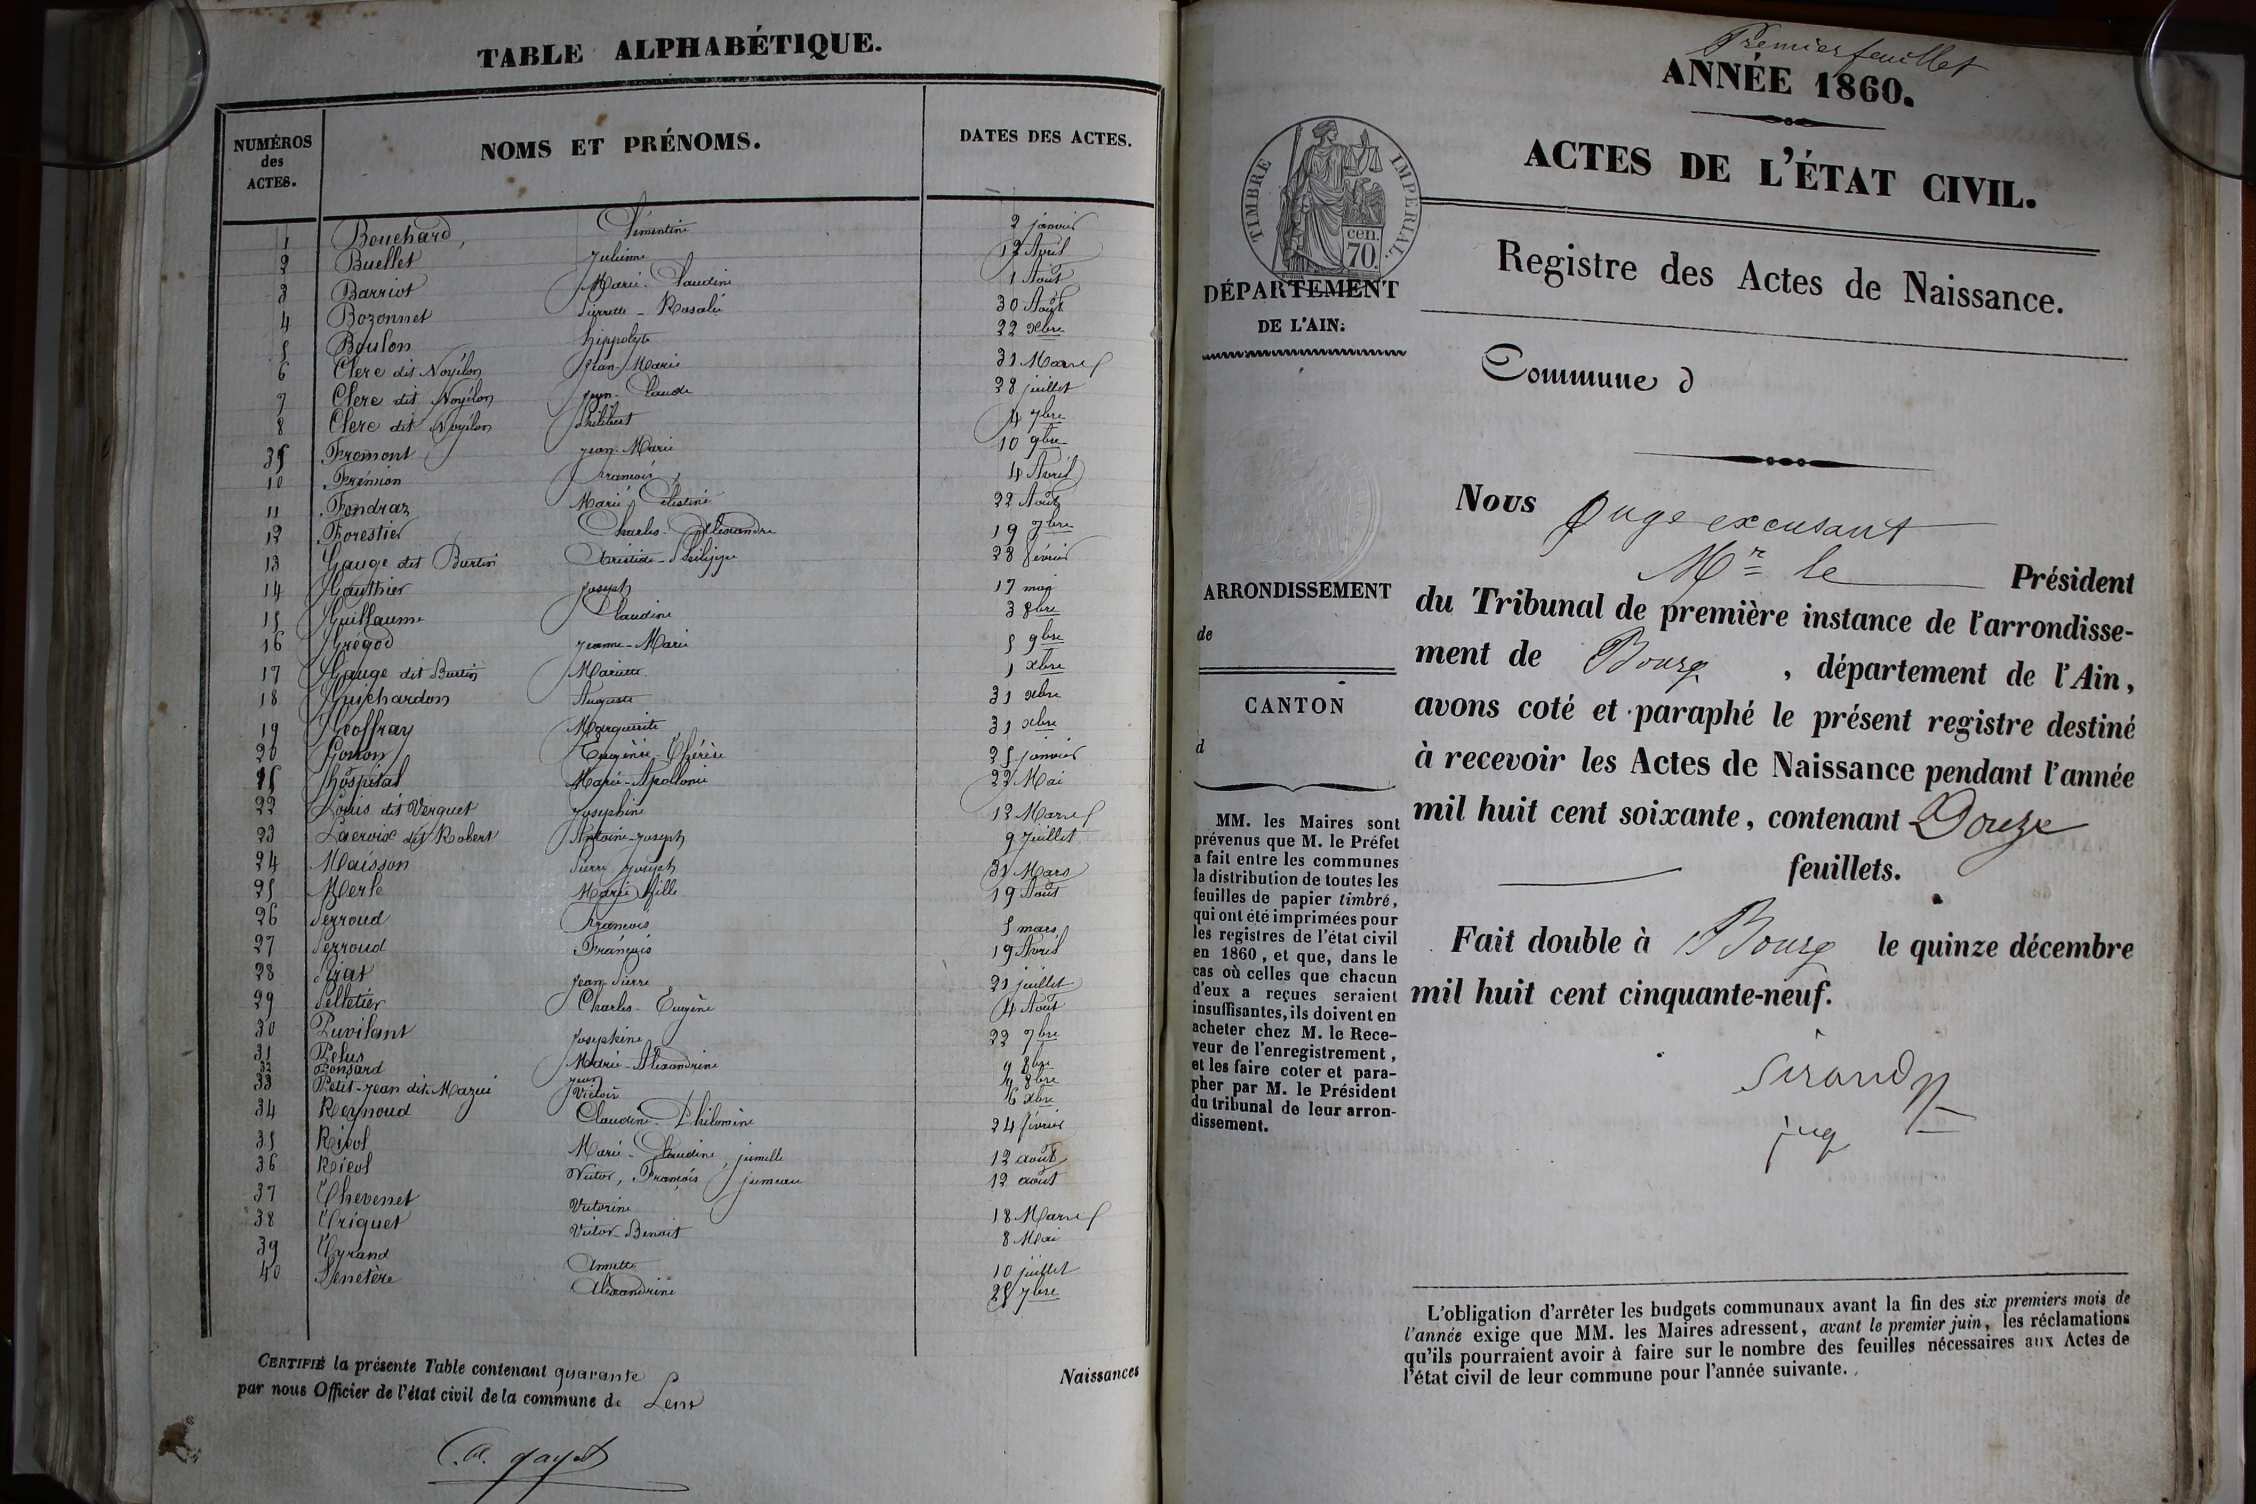 TABLE ALPHABÉTIQUE.
NUMÉROS des ACTES.
NOMS ET PRÉNOMS.
DATES DES ACTES.
1 Bouchard, Clémentine 2 janvier
2 Buellet Julienne 12 Avril
3 Barriot Marie-Claudine 1 Août
4 Bozonnet Pierrette-Rosalie 30 Août
5 Boulon hippolyte 22 xbre
6 Clerc dit Noyélon Jean-Marie 31 Mars
7 Clerc dit Noyélon Jean-Claude 28 juillet
8 Clerc dit Noyélon Philibert 4 7bre
Fromont Jean-Marie 10 9bre
10 Frémion françois 4 Avril
11 Fondraz Marie Célestine 22 Août
12 Forestier Charles-Alexandre 19 7bre
13 Gauge dit Burtin Aristide-Philippe 28 février
14 Gauthier Joseph 17 mai
15 Guillaume Claudine 3 8bre
16 Grégod Jeanne-Marie 5 9bre
17 Gauge dit Burtin Mariette 1 xbre
18 Guichardon Auguste 31 xbre
19 Geoffray Marguerite 31 xbre
20 Gonon Eugénie-Thérèse 25 janvier
hôspital Marie-Apollonie 22 Mai
22 Louis dit Verguet Joséphine 12 Mars
23 Lacroix dit Robert Antoine-Joseph 9 Juillet
24 Maisson Pierre Joseph 31 Mars
25 Merle Marie 19 Août
26 Perroud françois 5 mars
27 Perroud François 19 Avril
28 Pirat Jean-Pierre 21 juillet
29 Pelletier Charles-Eugène 4 Août
30 Puvilant Joséphine 22 7bre
31 Pelus Marie-Alexandrine 9 8bre
32 Ponsard Jean 4 8bre
33 Petit-Jean dit Mazui Victoir 6 xbre
34 Reynoud Claudine-Philomène 24 février
35 Riévol Marie-Claudine, jumelle 12 août
36 Riévol Victor, François jumeau 12 août
37 Thevenet Victorine 18 Mars
38 Triquet Victor-Benoit 8 Mai
39 Tyrand Annette 10 juillet
40 Vénetère Alexandrine 25 7bre
CERTIFIÉ la présente Table contenant quarante Naissances
par nous Officier de l'état civil de la commune de Lent
Premier feuillet
ANNÉE 1860.
ACTES DE L'ÉTAT CIVIL.
TIMBRE IMPÉRIAL.
cen.
70.
DÉPARTEMENT
DE L'AIN.
Registre des Actes de Naissance.
Commune d
Nous Juge excusant
Mr le Président
du Tribunal de première instance de l'arrondisse-
ment de Bourg, département de l'Ain,
avons coté et paraphé le présent registre destiné
à recevoir les Actes de Naissance pendant l'année
mil huit cent soixante, contenant Douze
feuillets.
Fait double à Bourg le quinze décembre
mil huit cent cinquante-neuf.
Sirand
jug
ARRONDISSEMENT
de
CANTON
d
MM. les Maires sont
prévenus que M. le Préfet
a fait entre les communes
la distribution de toutes les
feuilles de papier timbré,
qui ont été imprimées pour
les registres de l'état civil
en 1860, et que, dans le
cas où celles que chacun
d'eux a reçues seraient
insuffisantes, ils doivent en
acheter chez M. le Rece-
veur de l'enregistrement,
et les faire coter et para-
pher par M. le Président
du tribunal de leur arron-
dissement.
L'obligation d'arrêter les budgets communaux avant la fin des six premiers mois de
l'année exige que MM. les Maires adressent, avant le premier juin, les réclamations
qu'ils pourraient avoir à faire sur le nombre des feuilles nécessaires aux Actes de
l'état civil de leur commune pour l'année suivante.